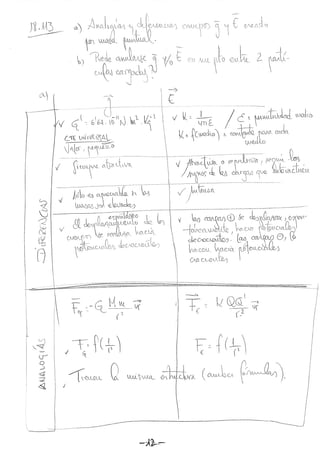 14.113 a) Analogías y diferencias campos g⃗ y E⃗ creado
por masa puntual.
b) Puede anularse g⃗ y/o E⃗ en un pto entre 2 partí-
culas cargadas?
a)
g⃗
E⃗
DIFERENCIAS
G = 6'67.10⁻¹¹ N m² Kg⁻²
CTE UNIVERSAL
Valor pequeño
K = 1/4πε / ε = permitividad medio
K = f(medio) = constante para cada
medio
Siempre atractiva
Atractiva o repulsiva, según los
signos de las cargas que interactúen
Sólo es apreciable si las
masas son elevadas
Intensa
El desplazamiento espontáneo de los
cuerpos se realiza hacia
potenciales decrecientes
las cargas ⊕ se desplazan, espon-
táneamente, hacia potenciales
decrecientes. las cargas ⊖, lo
hacen hacia potenciales
crecientes
ANALOGÍAS
F⃗g = -G Mm/r² u⃗
F⃗e = K QQ'/r² u⃗
Fg = f(1/r²)
Fe = f(1/r²)
Tienen la misma estructura (ambas fórmulas).
-12-